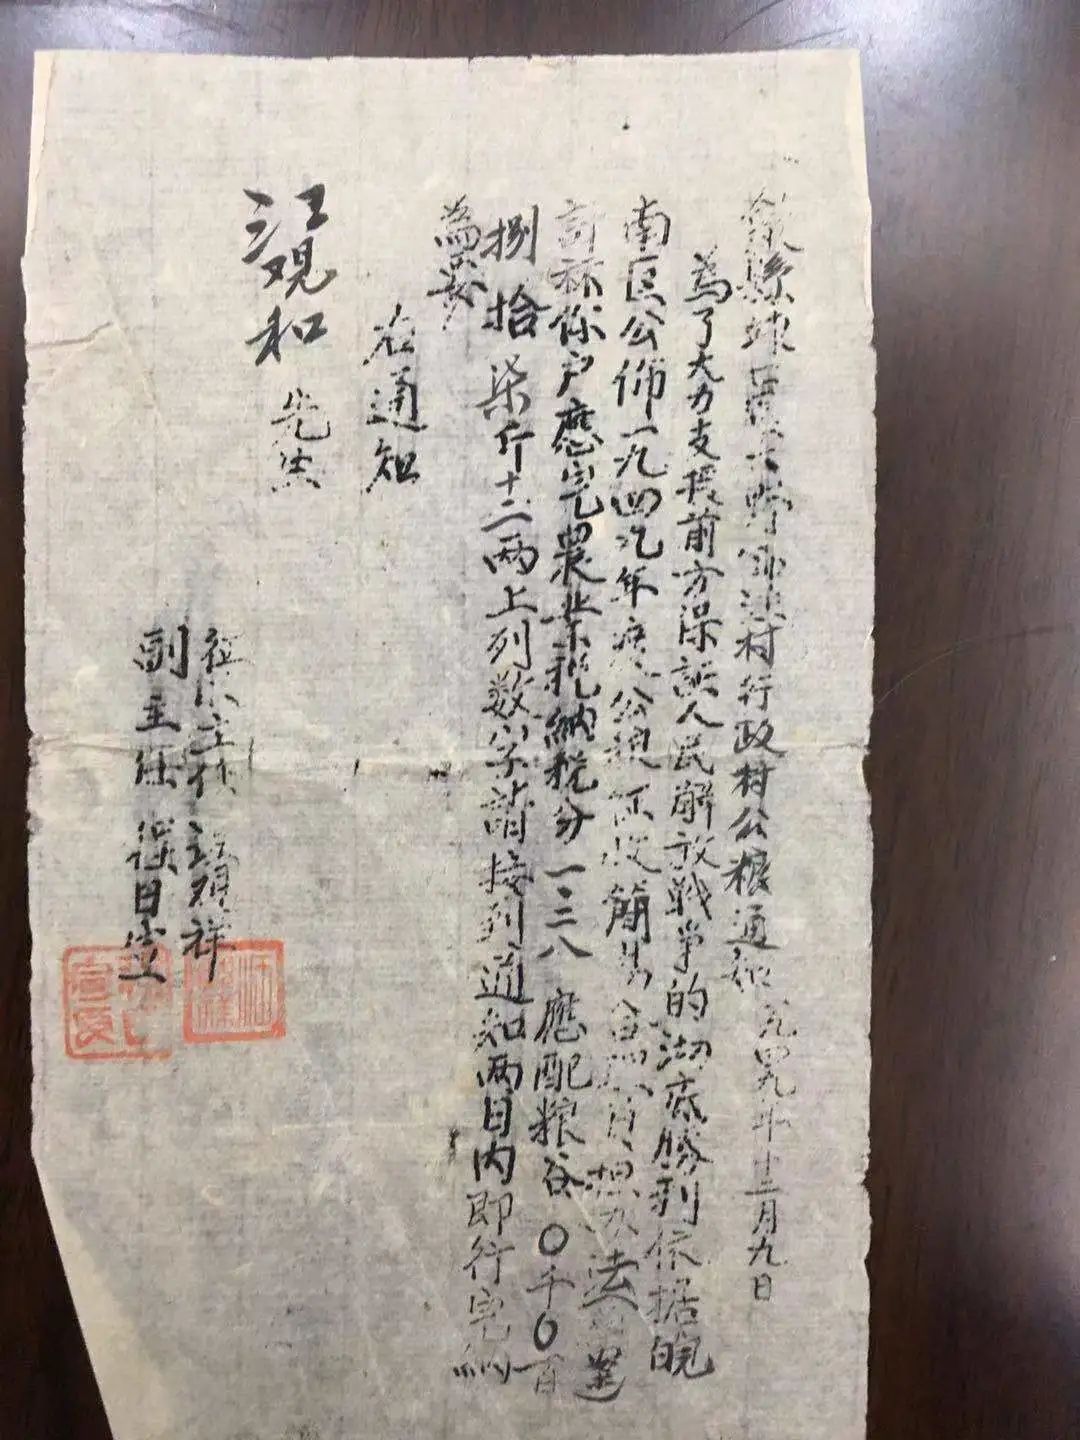 歙縣 區 鄉 村行政村公粮通知 一九四九年十二月九日
為了大力支援前方保証人民解放战争的澈底勝利依据皖
南区公佈一九四九年度公粮征收簡易 办法
計祘你户應完農業税納税分一三八應配粮谷〇千〇百
捌拾柒斤十二两上列数字請接到通知两日内即行完納
為要
右通知
江观和先生
主任 祥
副主任 日